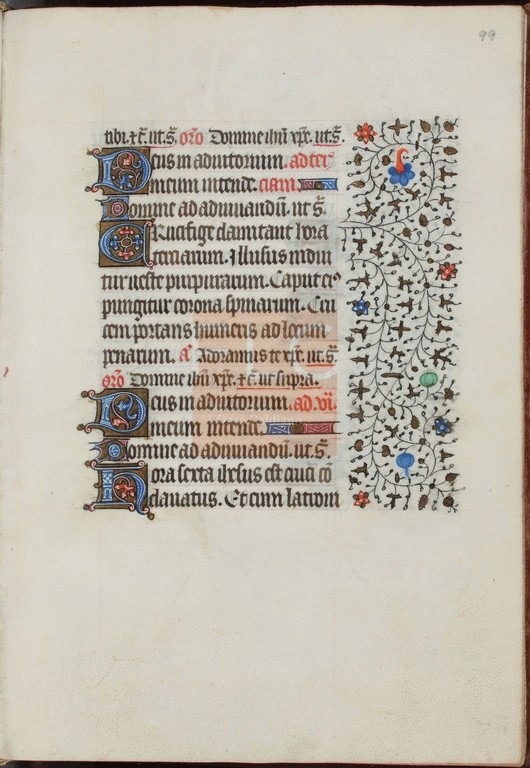 99
tibi. ⁊c̄. ut. s̄. oro̅ Domine ihū xp̅e. ut. s̄.
Deus in adiutorium. ad ter
meum intende. ciam.
Domine ad adiuuandū. ut s̄.
Crucifige clamitant hora
terciarum. Illusus indui
tur ueste purpuratum. Caput eiꝰ
pungitur corona spinarum. Cru
cem portans humeris ad locum
penarum. a᷎ Adoramus te xp̅e. ut. s̄.
oro̅ Domine ihū xp̅e. ⁊c̄. ut supra.
Deus in adiutorium. ad. vi.
meum intende.
Domine ad adiuuandū. ut. s̄.
Hora sexta ihesus est cruci cō
clauatus. Et cum latroni